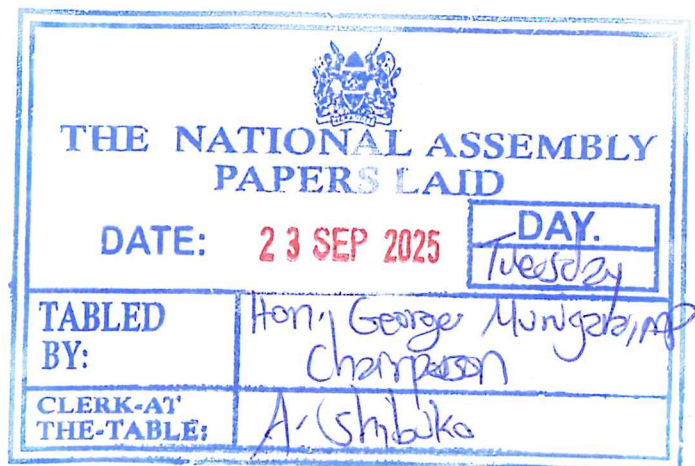 THE NATIONAL ASSEMBLY
PAPERS LAID
DATE: 23 SEP 2025
DAY.
Tuesday
TABLED BY:
Hon. George Murugara, MP
Chairperson
CLERK-AT THE-TABLE:
A. Shibuko